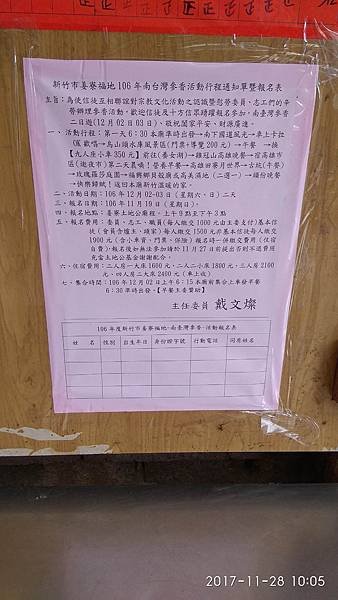 正 正 正 正
新竹市姜寮福地106年南台灣參香活動行程通知單暨報名表
主旨:為使信徒互相聯誼對宗教文化活動之認識暨慰勞委員、志工們的辛
勞辦理參香活動,歡迎信徒及十方信眾踴躍報名參加,南臺灣參香
二日遊(12月02日03日)、敬祝闔家平安、財源廣進。
一、活動行程:第一天6:30本廟準時出發→南下國道風光→車上卡拉
200元)→午餐→換
【九人座小車350元】前往
區(逛夜市)第二天晨喚!營養早餐→高雄
→玫瑰
→快樂歸賦!返回本廟新竹溫暖的家。
二、活動日期:106年12月02-03日(星期六、日)二天
三、報名日期:106年11月19日(星期日)。
四、報名地點:姜寮土地公廟裡。上午9點至下午3點
五、報名費用:委員、志工、職員(每人繳交1000元由主委支付)基本信
徒(會員含爐主、頭家)每人繳交1500元非基本信徒每人繳交
1900元(含小車資、門票、保險)報名時一併繳交費用(住宿
自費)、報名後如無法參加請於11月27日前提出否則不退費用
充當土地公基金謝謝配合。
六、住宿費用:二人房一大床1600元、二人二小床1800元、三人房2100
元、四人房二大床2400元(車上收)
七、集合時間:106年12月02日上午6:15本廟前集合上車發早餐
6:30準時出發。【早餐主委贊助】
主任委員 戴文燦
106年度新竹市姜寮福地-南臺灣參香-活動報名表
姓 名 性別 出生年月日 身份證字號 行動電話 同房姓名
2017-11-28 10:05